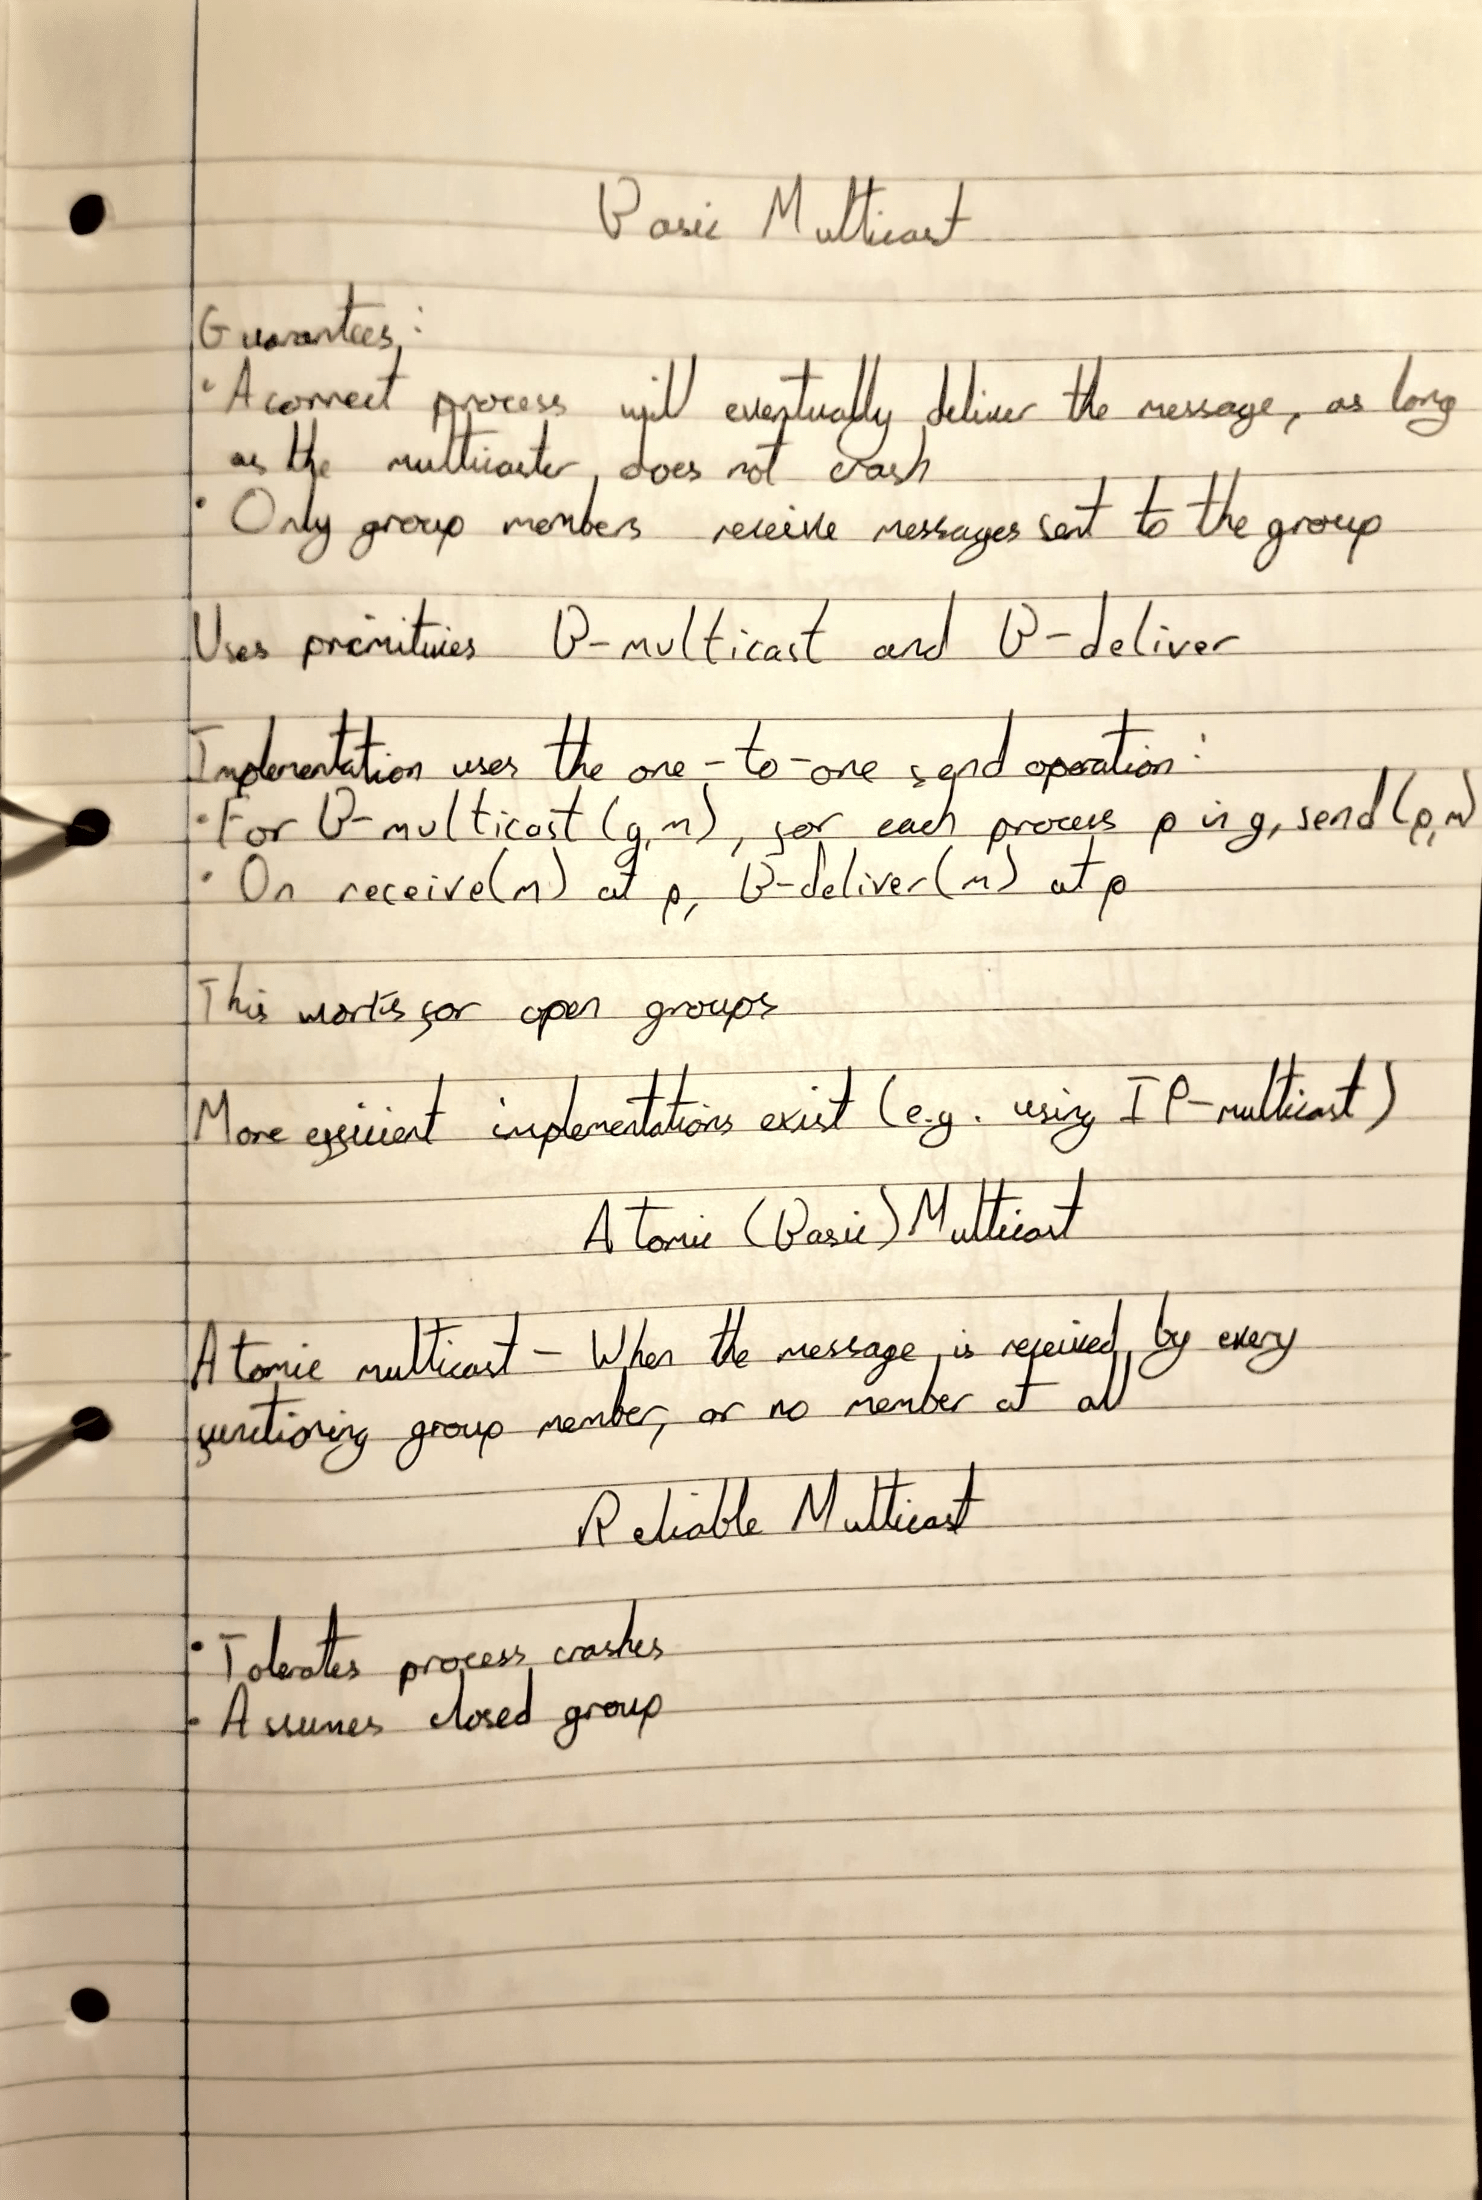 Basic Multicast
Guarantees:
• A correct process will eventually deliver the message, as long
as the multicaster does not crash
• Only group members receive messages sent to the group
Uses primitives B-multicast and B-deliver
Implementation uses the one-to-one send operation:
• For B-multicast(g,m), for each process p in g, send(p,m)
• On receive(m) at p, B-deliver(m) at p
This works for open groups
More efficient implementations exist (e.g. using IP-multicast)
Atomic (Basic) Multicast
Atomic multicast - When the message is received by every
functioning group member, or no member at all
Reliable Multicast
• Tolerates process crashes
• Assumes closed group